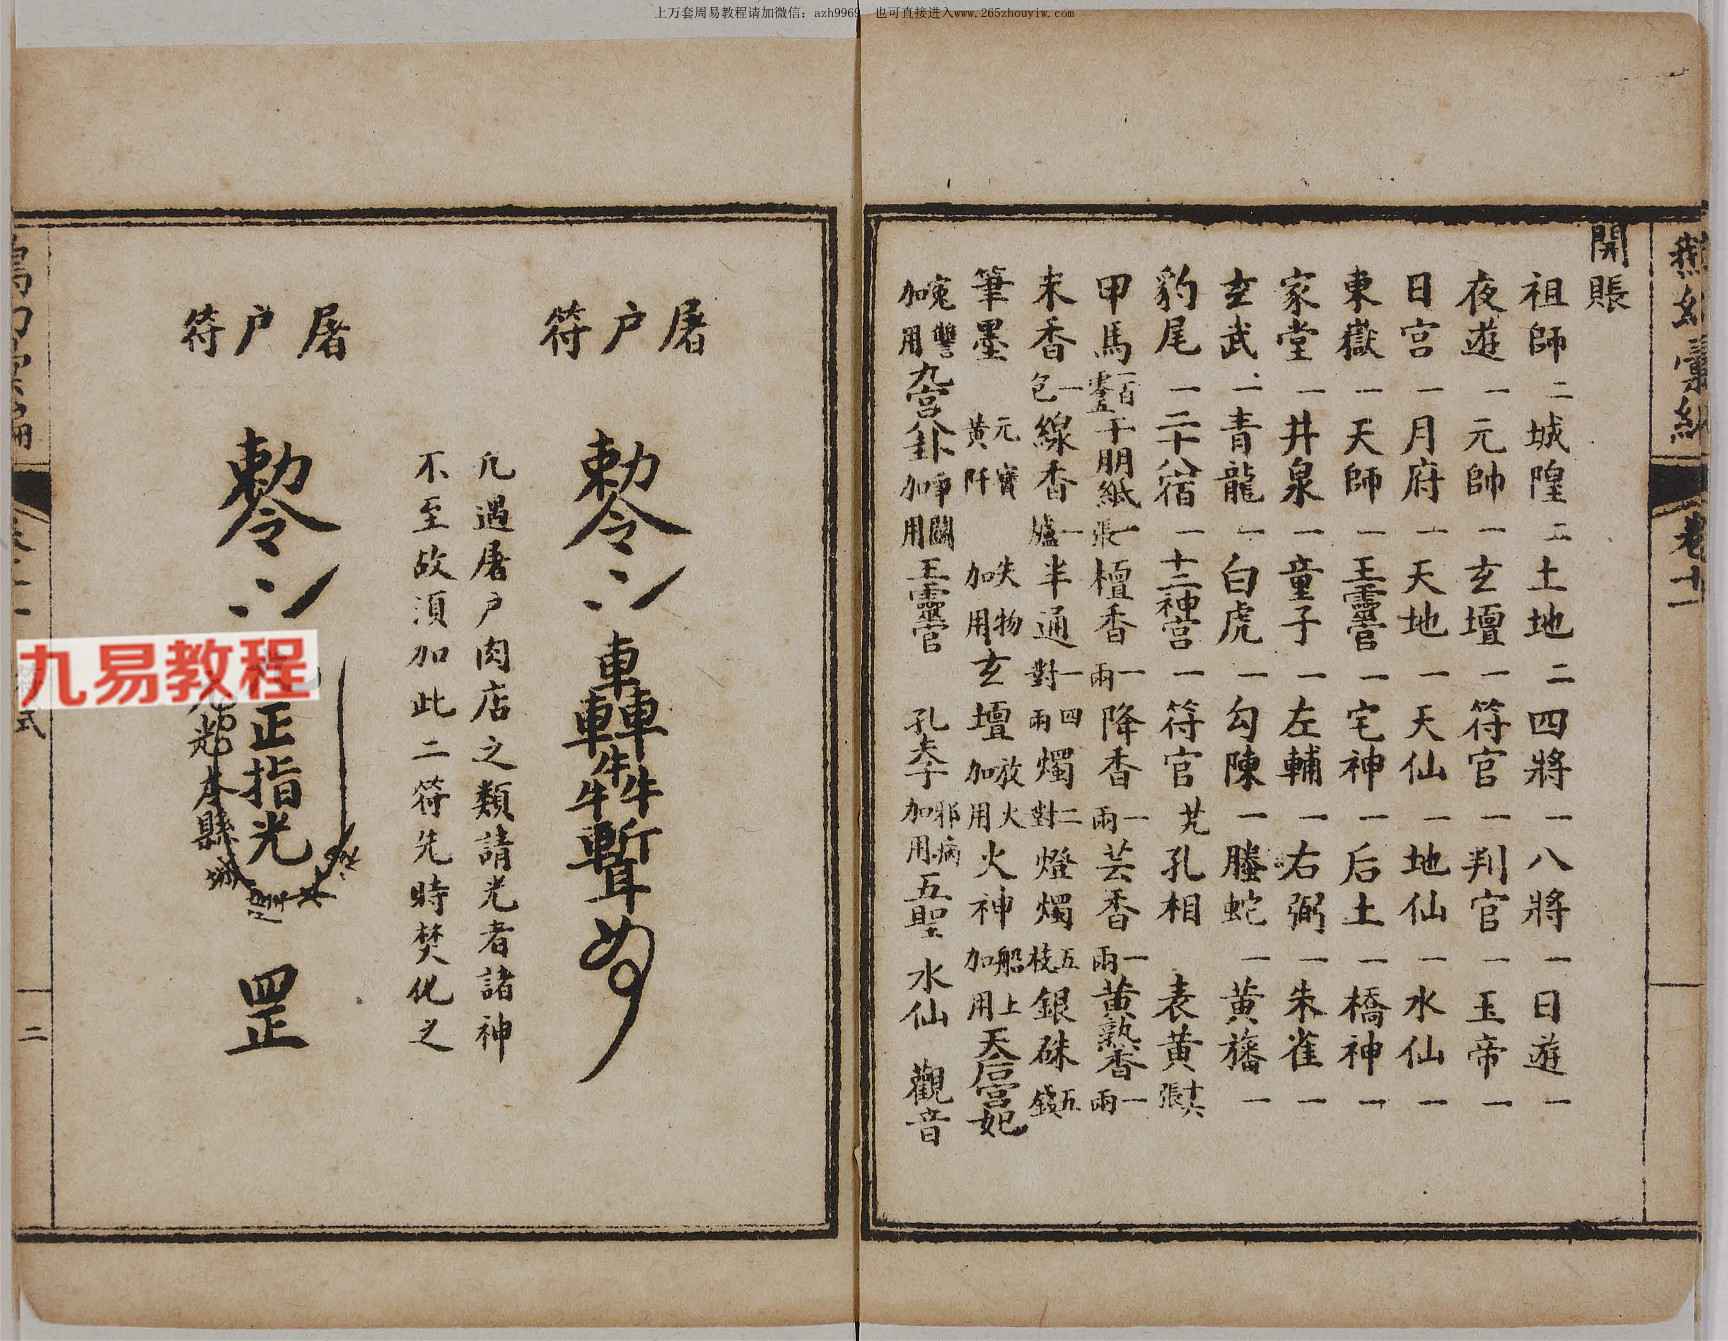 上万套周易教程请加微信: azh9969 也可直接进入www.265zhouyiw.com
卷十一
開賬
祖師二 城隍二 土地二 四將一 八將一 日遊一
夜遊一 元帥一 玄壇一 符官一 判官一 玉帝一
日宮一 月府一 天地一 天仙一 地仙一 水仙一
東嶽一 天師一 王靈官一 宅神一 后土一 橋神一
家堂一 井泉一 童子一 左輔一 右弼一 朱雀一
玄武一 青龍一 白虎一 勾陳一 螣蛇一 黃旛一
豹尾一 二十八宿一 十二神宮一 符官 孔相 表黃十六張
甲馬 千朋紙一張 檀香一兩 降香一兩 芸香一兩 黃熟香一兩
末香一包 線香一爐 半通一對 四兩燭二對 燈燭五枝 銀硃五錢
筆墨 元寶黃阡 失物加用玄壇 放火加用火神 船上加用天后宮妃
冤讐加用九宮八卦 爭鬬加用王靈官 孔夫子 邪病加用五聖 水仙 觀音
屠户符
敕令
凡遇屠户肉店之類請光者諸神
不至故須加此二符先時焚化之
屠户符
敕令
正指光
本縣城
罡
式
二
九易教程